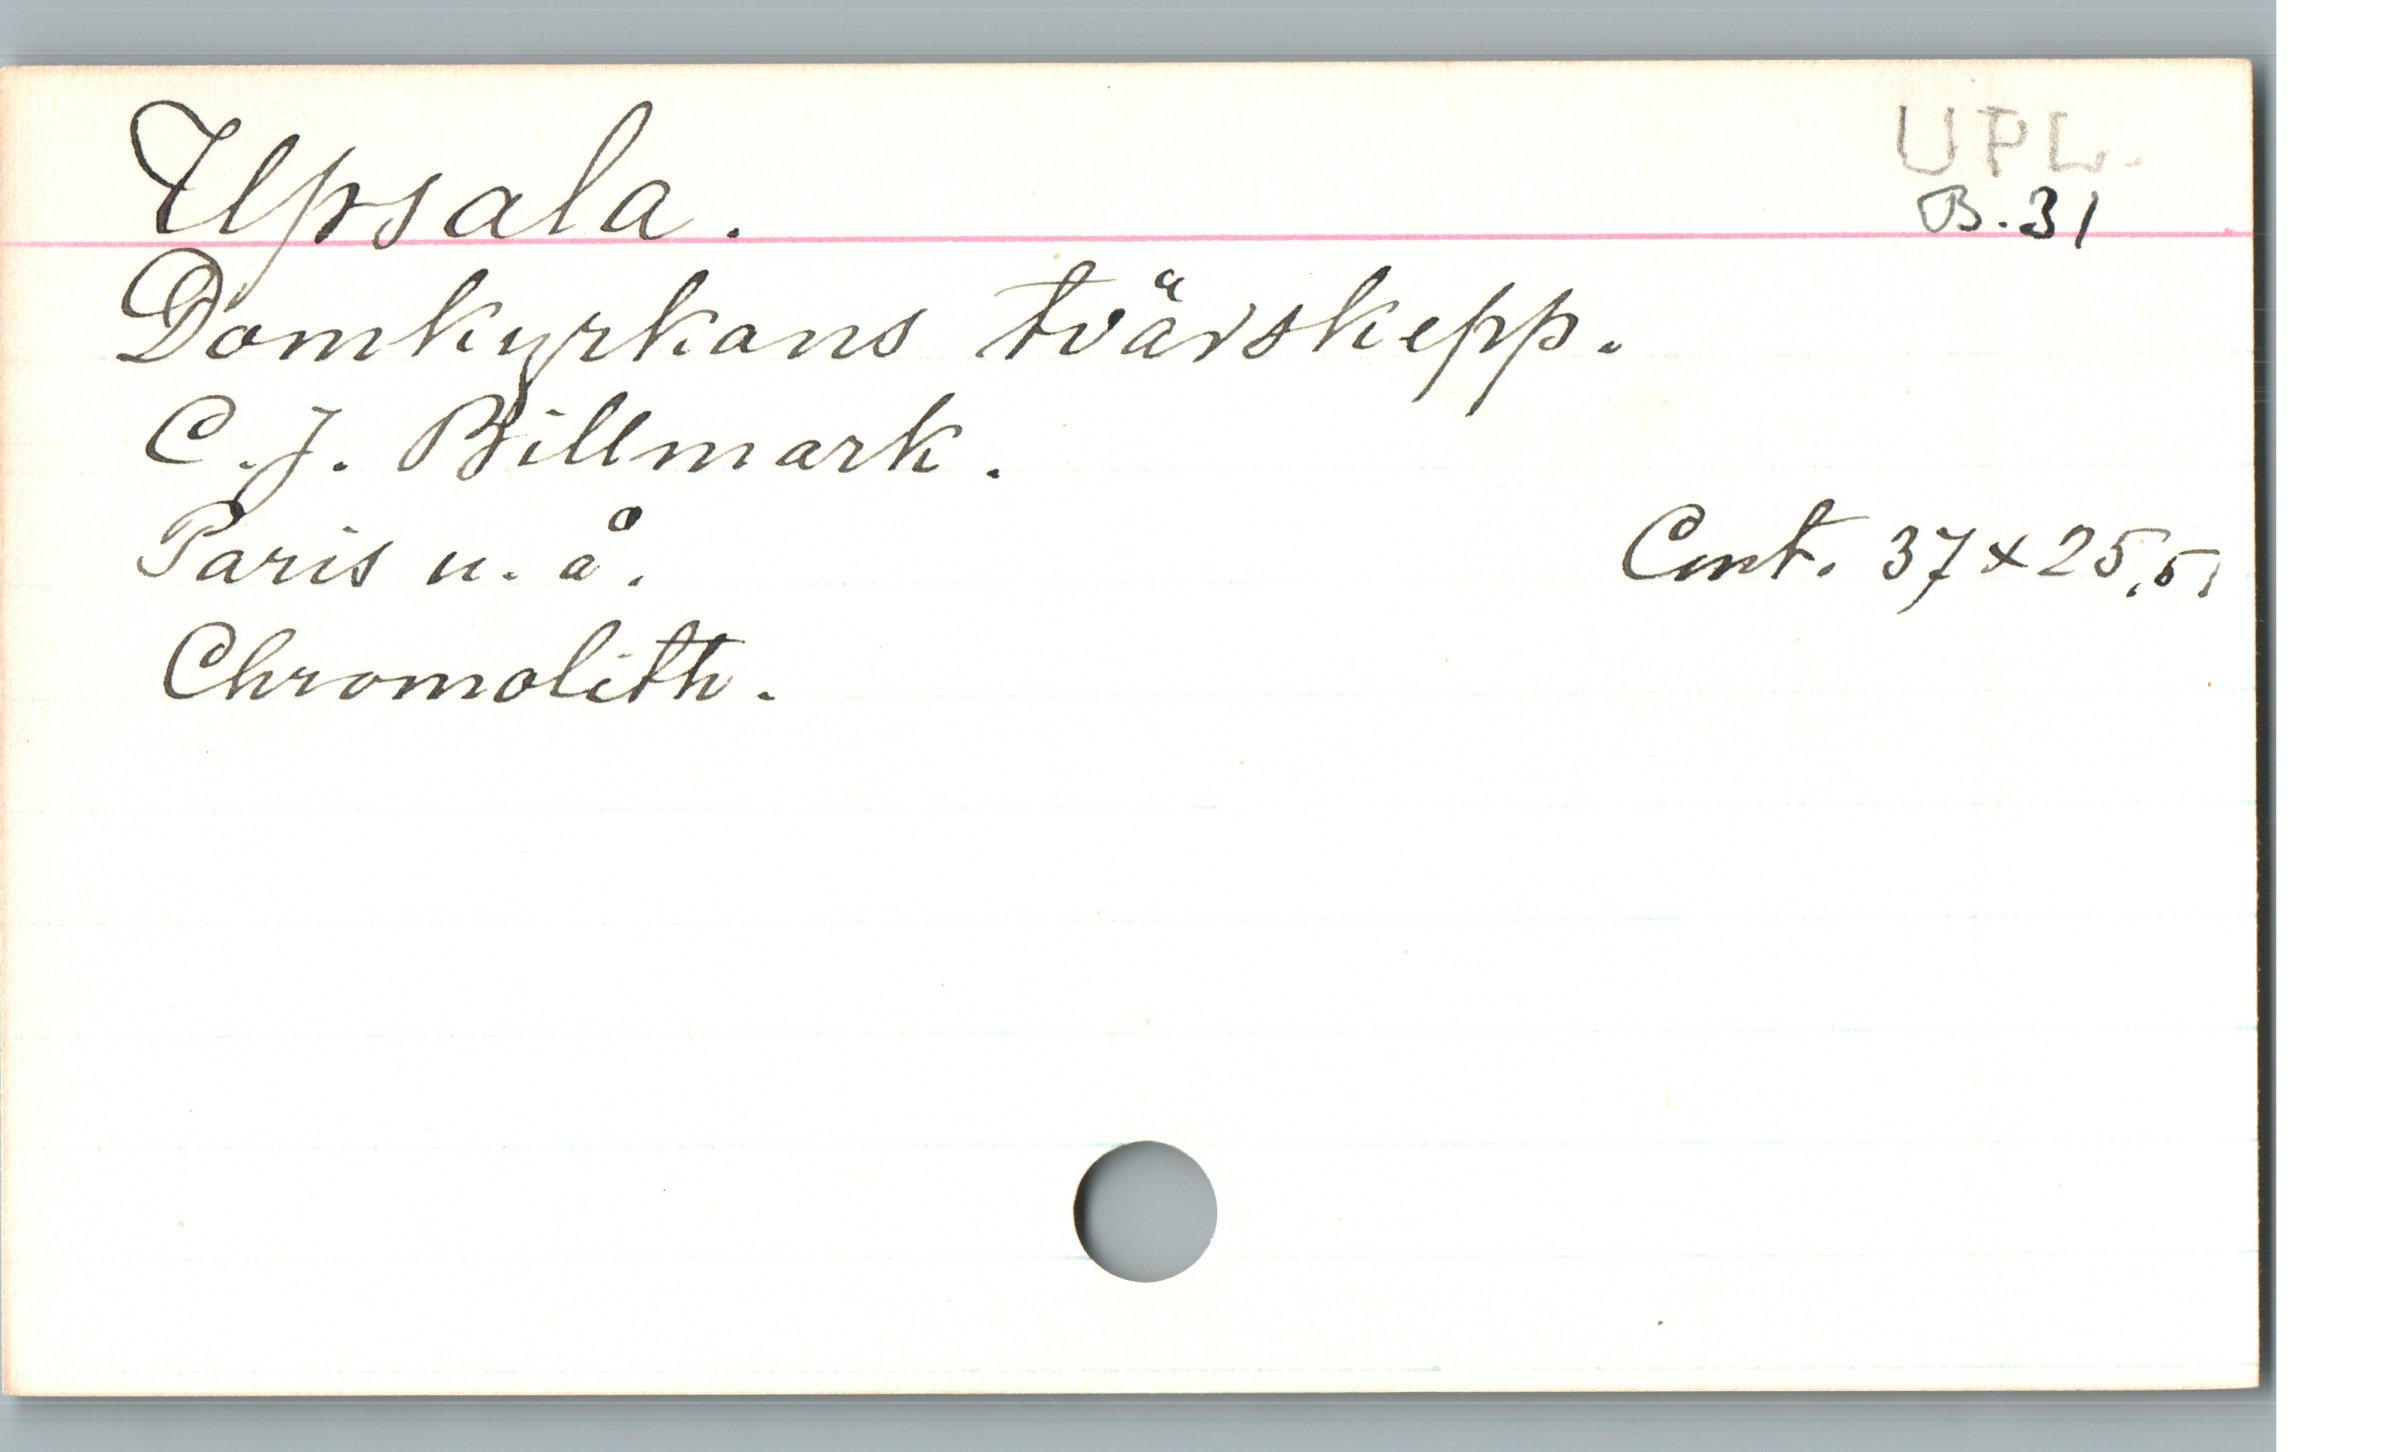 Upsala.
UPL.
B.31
Domkyrkans tvärskepp.
C.J. Billmark.
Paris u. å.
Cent. 37 x 25,5,
Chromolith.